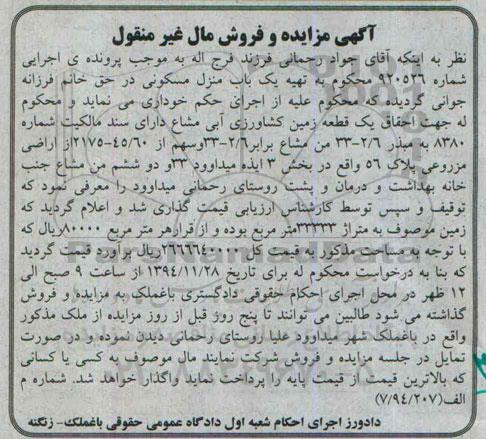 آگهی مزایده و فروش مال غیر منقول
نظر به اینکه آقای جواد رحمانی فرزند فرج اله به موجب پرونده ی اجرایی
شماره ۹۲۰۵۲۶ محکوم به تهیه یک باب منزل مسکونی در حق خانم فرزانه
جوانی گردیده که محکوم علیه از اجرای حکم خوداری می نماید و محکوم
له جهت احقاق یک قطعه زمین کشاورزی آبی مشاع دارای سند مالکیت شماره
۸۳۸۰ به میذر ۲/۶-۳۳ من مشاع برابر۲/۶-۳۳وسهم از ۴۵/۶۰-۲۱۷۵از اراضی
مزروعی پلاک ۵۶ واقع در بخش ۳ ایذه میداوود ۳۳و دو ششم من مشاع جنب
خانه بهداشت و درمان و پشت روستای رحمانی میداوود را معرفی نمود که
توقیف و سپس توسط کارشناس ارزیابی قیمت گذاری شد و اعلام گردید که
زمین موصوف به متراژ ۳۳۳۳۳متر مربع بوده و از قرارهر متر مربع ۸۰۰۰۰ریال که
با توجه به مساحت مذکور به قیمت کل ۲۶۶۶۶۴۰۰۰۰ریال برآورد قیمت گردید
که بنا به درخواست محکوم له برای تاریخ ۱۳۹۴/۱۱/۲۸ از ساعت ۹ صبح الی
۱۲ ظهر در محل اجرای احکام حقوقی دادگستری باغملک به مزایده و فروش
گذاشته می شود طالبین می توانند تا پنج روز قبل از روز مزایده از ملک مذکور
واقع در باغملک شهر میداوود علیا روستای رحمانی دیدن نموده و در صورت
تمایل در جلسه مزایده و فروش شرکت نمایند مال موصوف به کسی یا کسانی
که بالاترین قیمت از قیمت پایه را پرداخت نماید واگذار خواهد شد. شماره م
الف(۷/۹۴/۲۰۷)
دادورز اجرای احکام شعبه اول دادگاه عمومی حقوقی باغملک- زنگنه